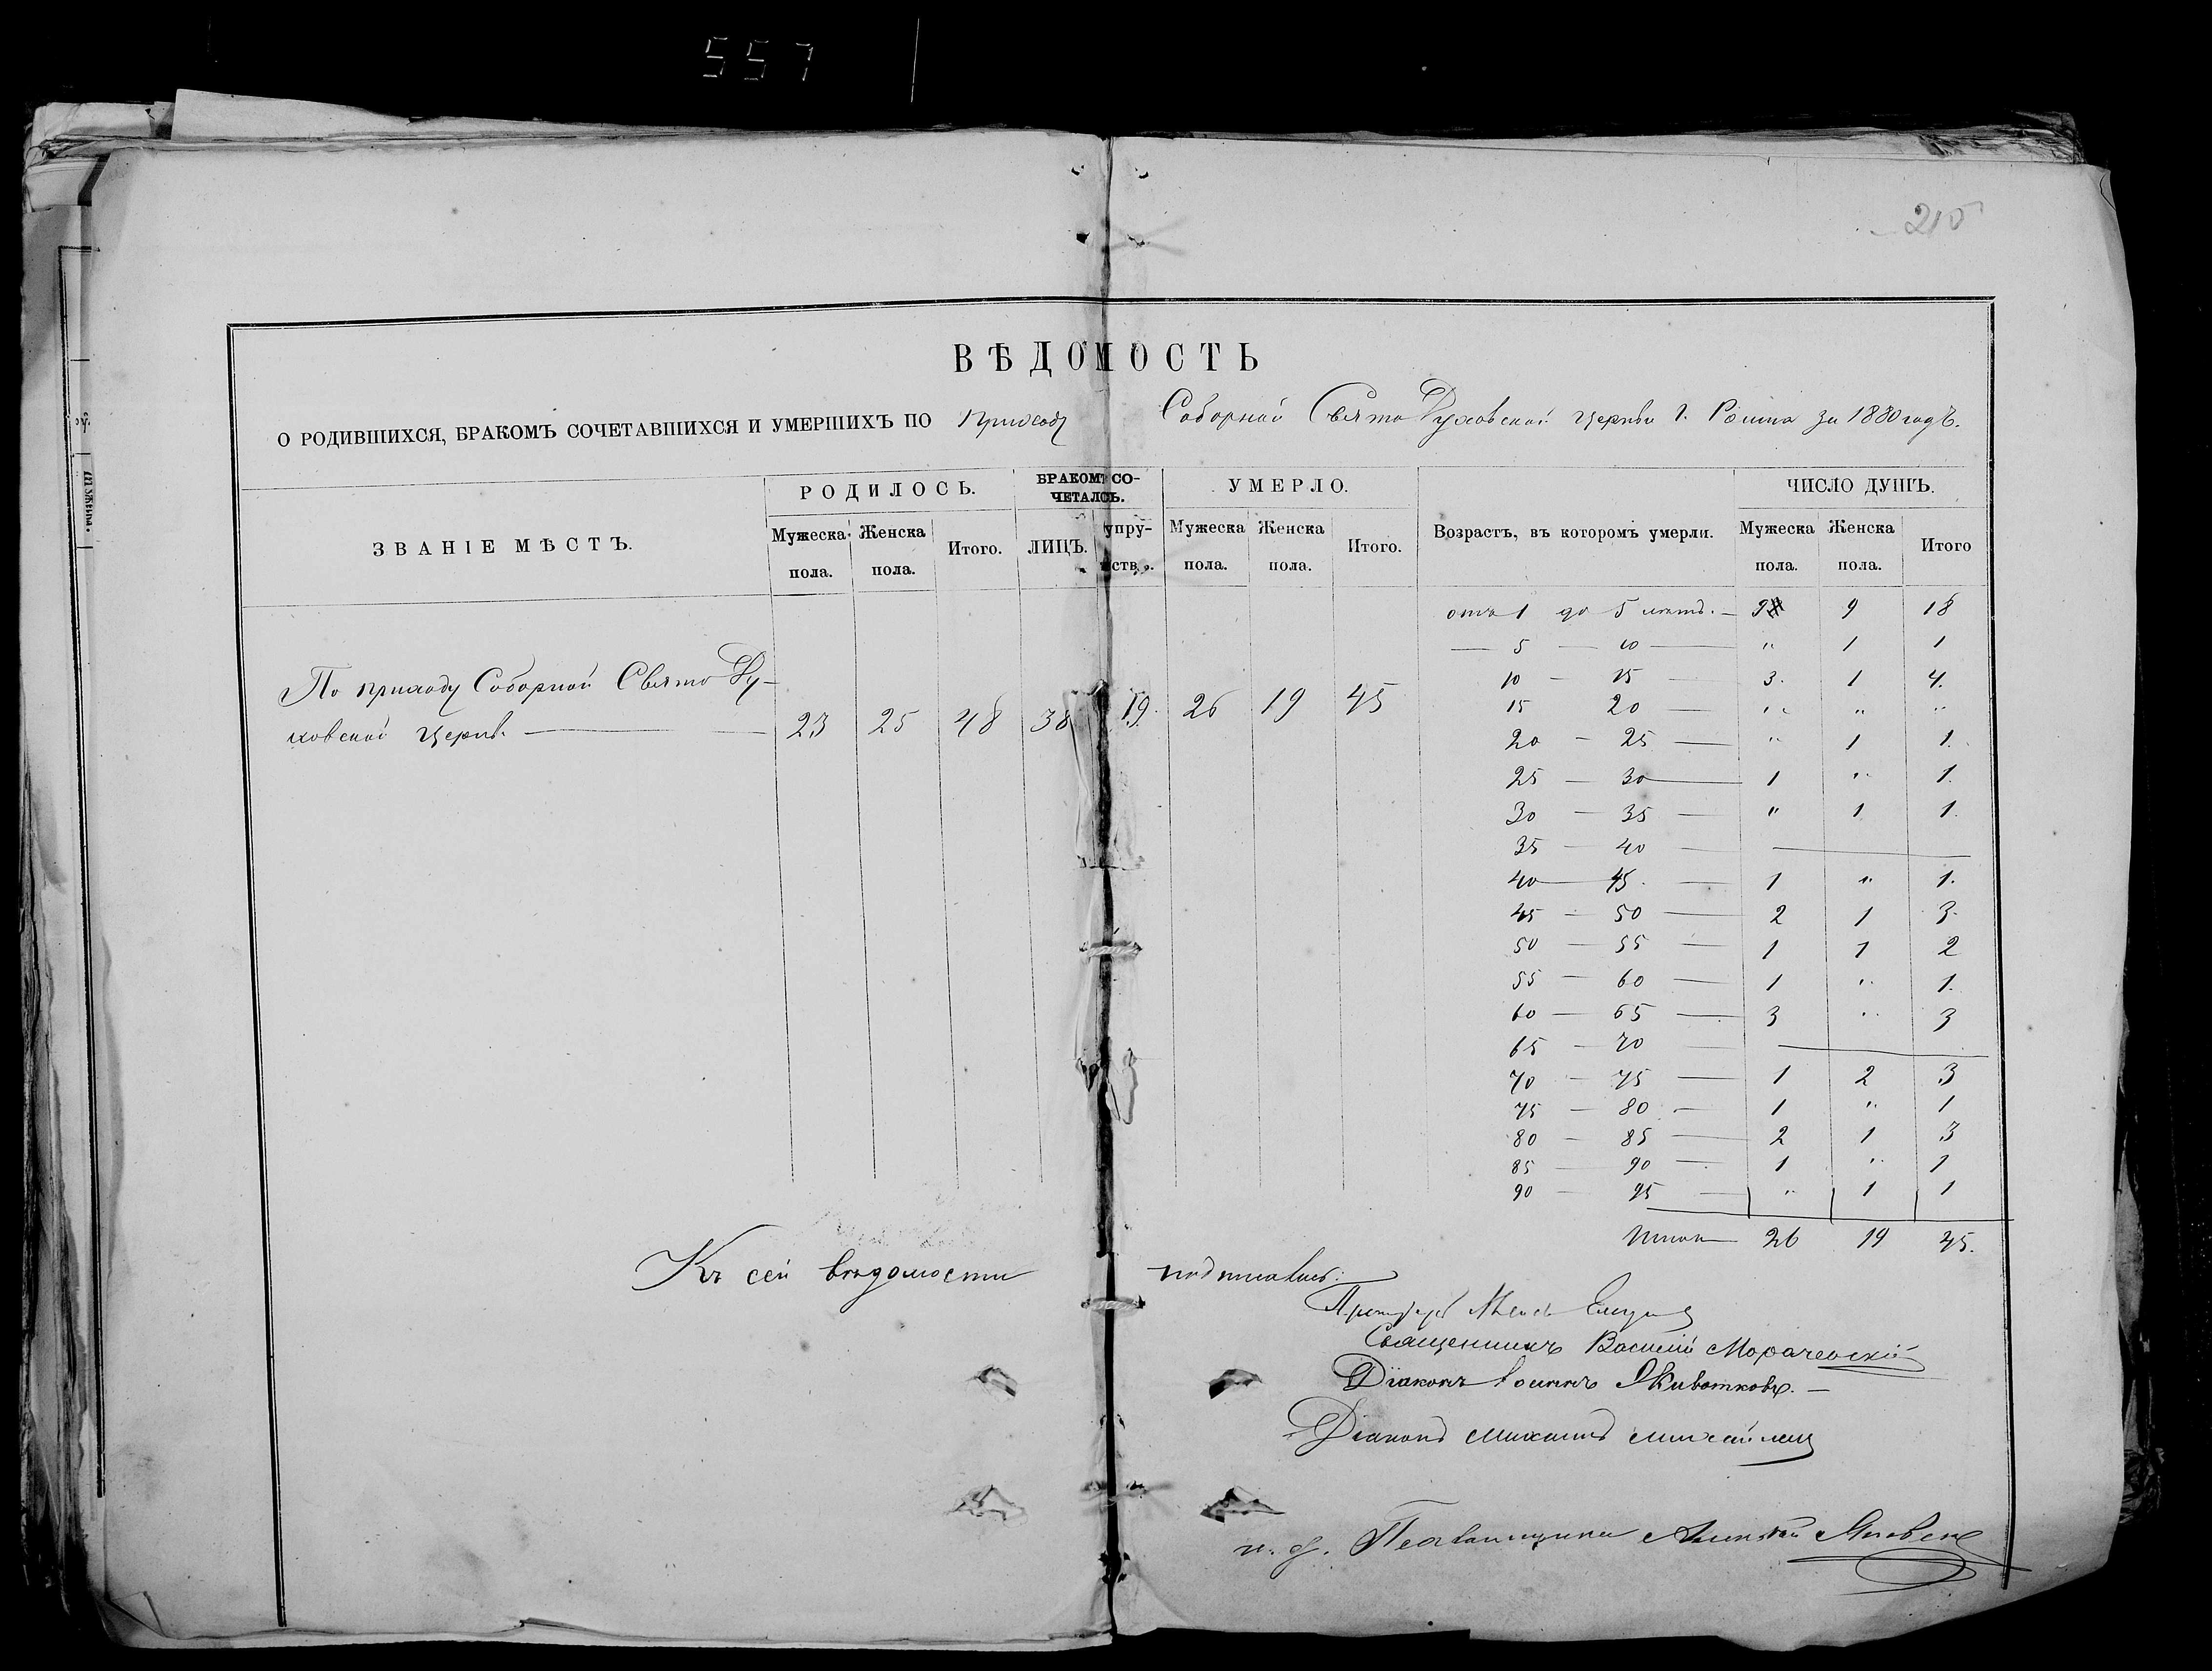 557
215
ВѢДОМОСТЬ
О РОДИВШИХСЯ, БРАКОМЪ СОЧЕТАВШИХСЯ И УМЕРШИХЪ ПО приходу Соборной Свято Духовской церкви г. Ромна за 1880 годъ.
ЗВАНІЕ МѢСТЪ. РОДИЛОСЬ. БРАКОМЪ СО-ЧЕТАЛОСЬ. УМЕРЛО. Возрастъ, въ которомъ умерли. ЧИСЛО ДУШЪ.
Мужеска пола. Женска пола. Итого. ЛИЦЪ. упру- Мужеска пола. Женска пола. Итого. Мужеска пола. Женска пола. Итого
По приходу Соборной Свято Ду-
ховской церкв. 23 25 48 38 19. 26 19 45
отъ 1 до 5 лѣтъ. 9 9 18
5 — 10 " 1 1
10 — 15 3. 1 4.
15 20 " " "
20 — 25 " 1 1.
25 — 30 1 " 1.
30 — 35 " 1 1.
35 — 40 —
40 — 45. 1 " 1.
45 — 50 2 1 3.
50 — 55 1 1 2
55 — 60 1 " 1.
60 — 65 3 " 3
65 — 70 —
70 — 75 1 2 3
75 — 80 1 " 1
80 — 85 2 1 3
85 — 90 1 " 1
90 — 95 " 1 1
Итого 26 19 45.
Къ сей вѣдомости подписались:
Священникъ Василій Морачевскій
Діаконъ Іоаннъ Животковъ.
Діаконъ Михаилъ
и. д. Псаломщика Алексѣй